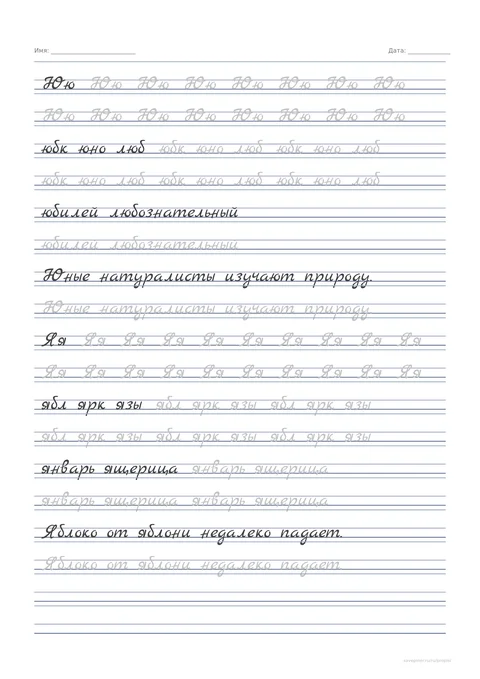 Имя: Дата:
Юю Юю Юю Юю Юю Юю Юю Юю
Юю Юю Юю Юю Юю Юю Юю Юю
юбк юно люб юбк юно люб юбк юно люб
юбк юно люб юбк юно люб юбк юно люб
юбилей любознательный
юбилей любознательный
Юные натуралисты изучают природу.
Юные натуралисты изучают природу
Яя Яя Яя Яя Яя Яя Яя Яя Яя Яя
Яя Яя Яя Яя Яя Яя Яя Яя Яя Яя
ябл ярк язы ябл ярк язы ябл ярк язы
ябл ярк язы ябл ярк язы ябл ярк язы
январь ящерица январь ящерица
январь ящерица январь ящерица
Яблоко от яблони недалеко падает.
Яблоко от яблони недалеко падает